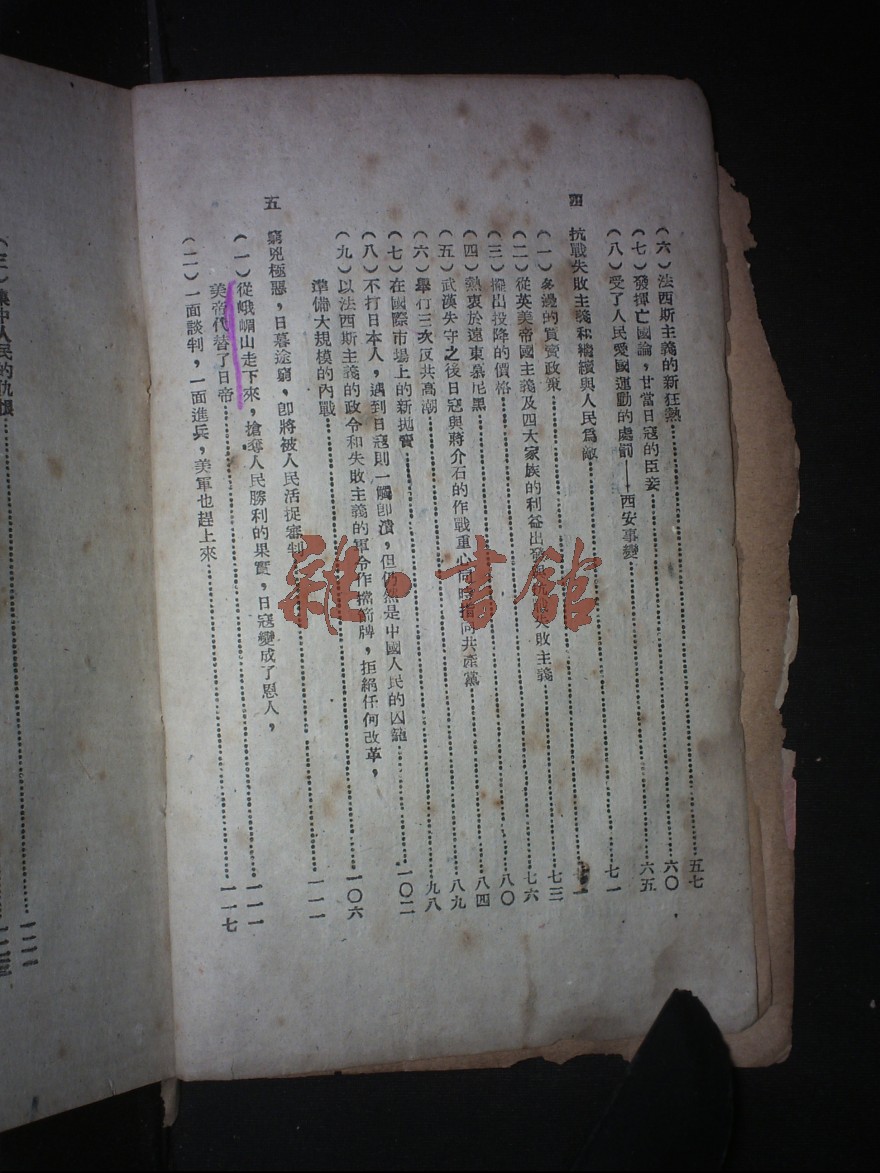 (六)法西斯主義的新狂熱……五七
(七)發揮亡國論,甘當日寇的臣妾……六〇
(八)受了人民愛國運動的處罰——西安事變……六五
四 抗戰失敗主義和繼續與人民為敵……七一
(一)多邊的買賣政策……
(二)從英美帝國主義及四大家族的利益出發與抗戰失敗主義……七三
(三)擺出投降的價格……七六
(四)熱衷於遠東慕尼黑……八〇
(五)武漢失守之後日寇與蔣介石的作戰重心同時指向共產黨……八四
(六)舉行三次反共高潮……八九
(七)在國際市場上的新拋賣……九八
(八)不打日本人,遇到日寇則一觸即潰,但仍然是中國人民的囚籠……一〇二
(九)以法西斯主義的政令和失敗主義的軍令作擋箭牌,拒絕任何改革,
準備大規模的內戰……一〇六
五 窮兇極惡,日暮途窮,即將被人民活捉審判……一一一
(一)從峨嵋山走下來,搶奪人民勝利的果實,日寇變成了恩人,
美帝代替了日帝……一一一
(二)一面談判,一面進兵,美軍也趕上來……一一七
(三)集中人民的仇恨……
雜·書館